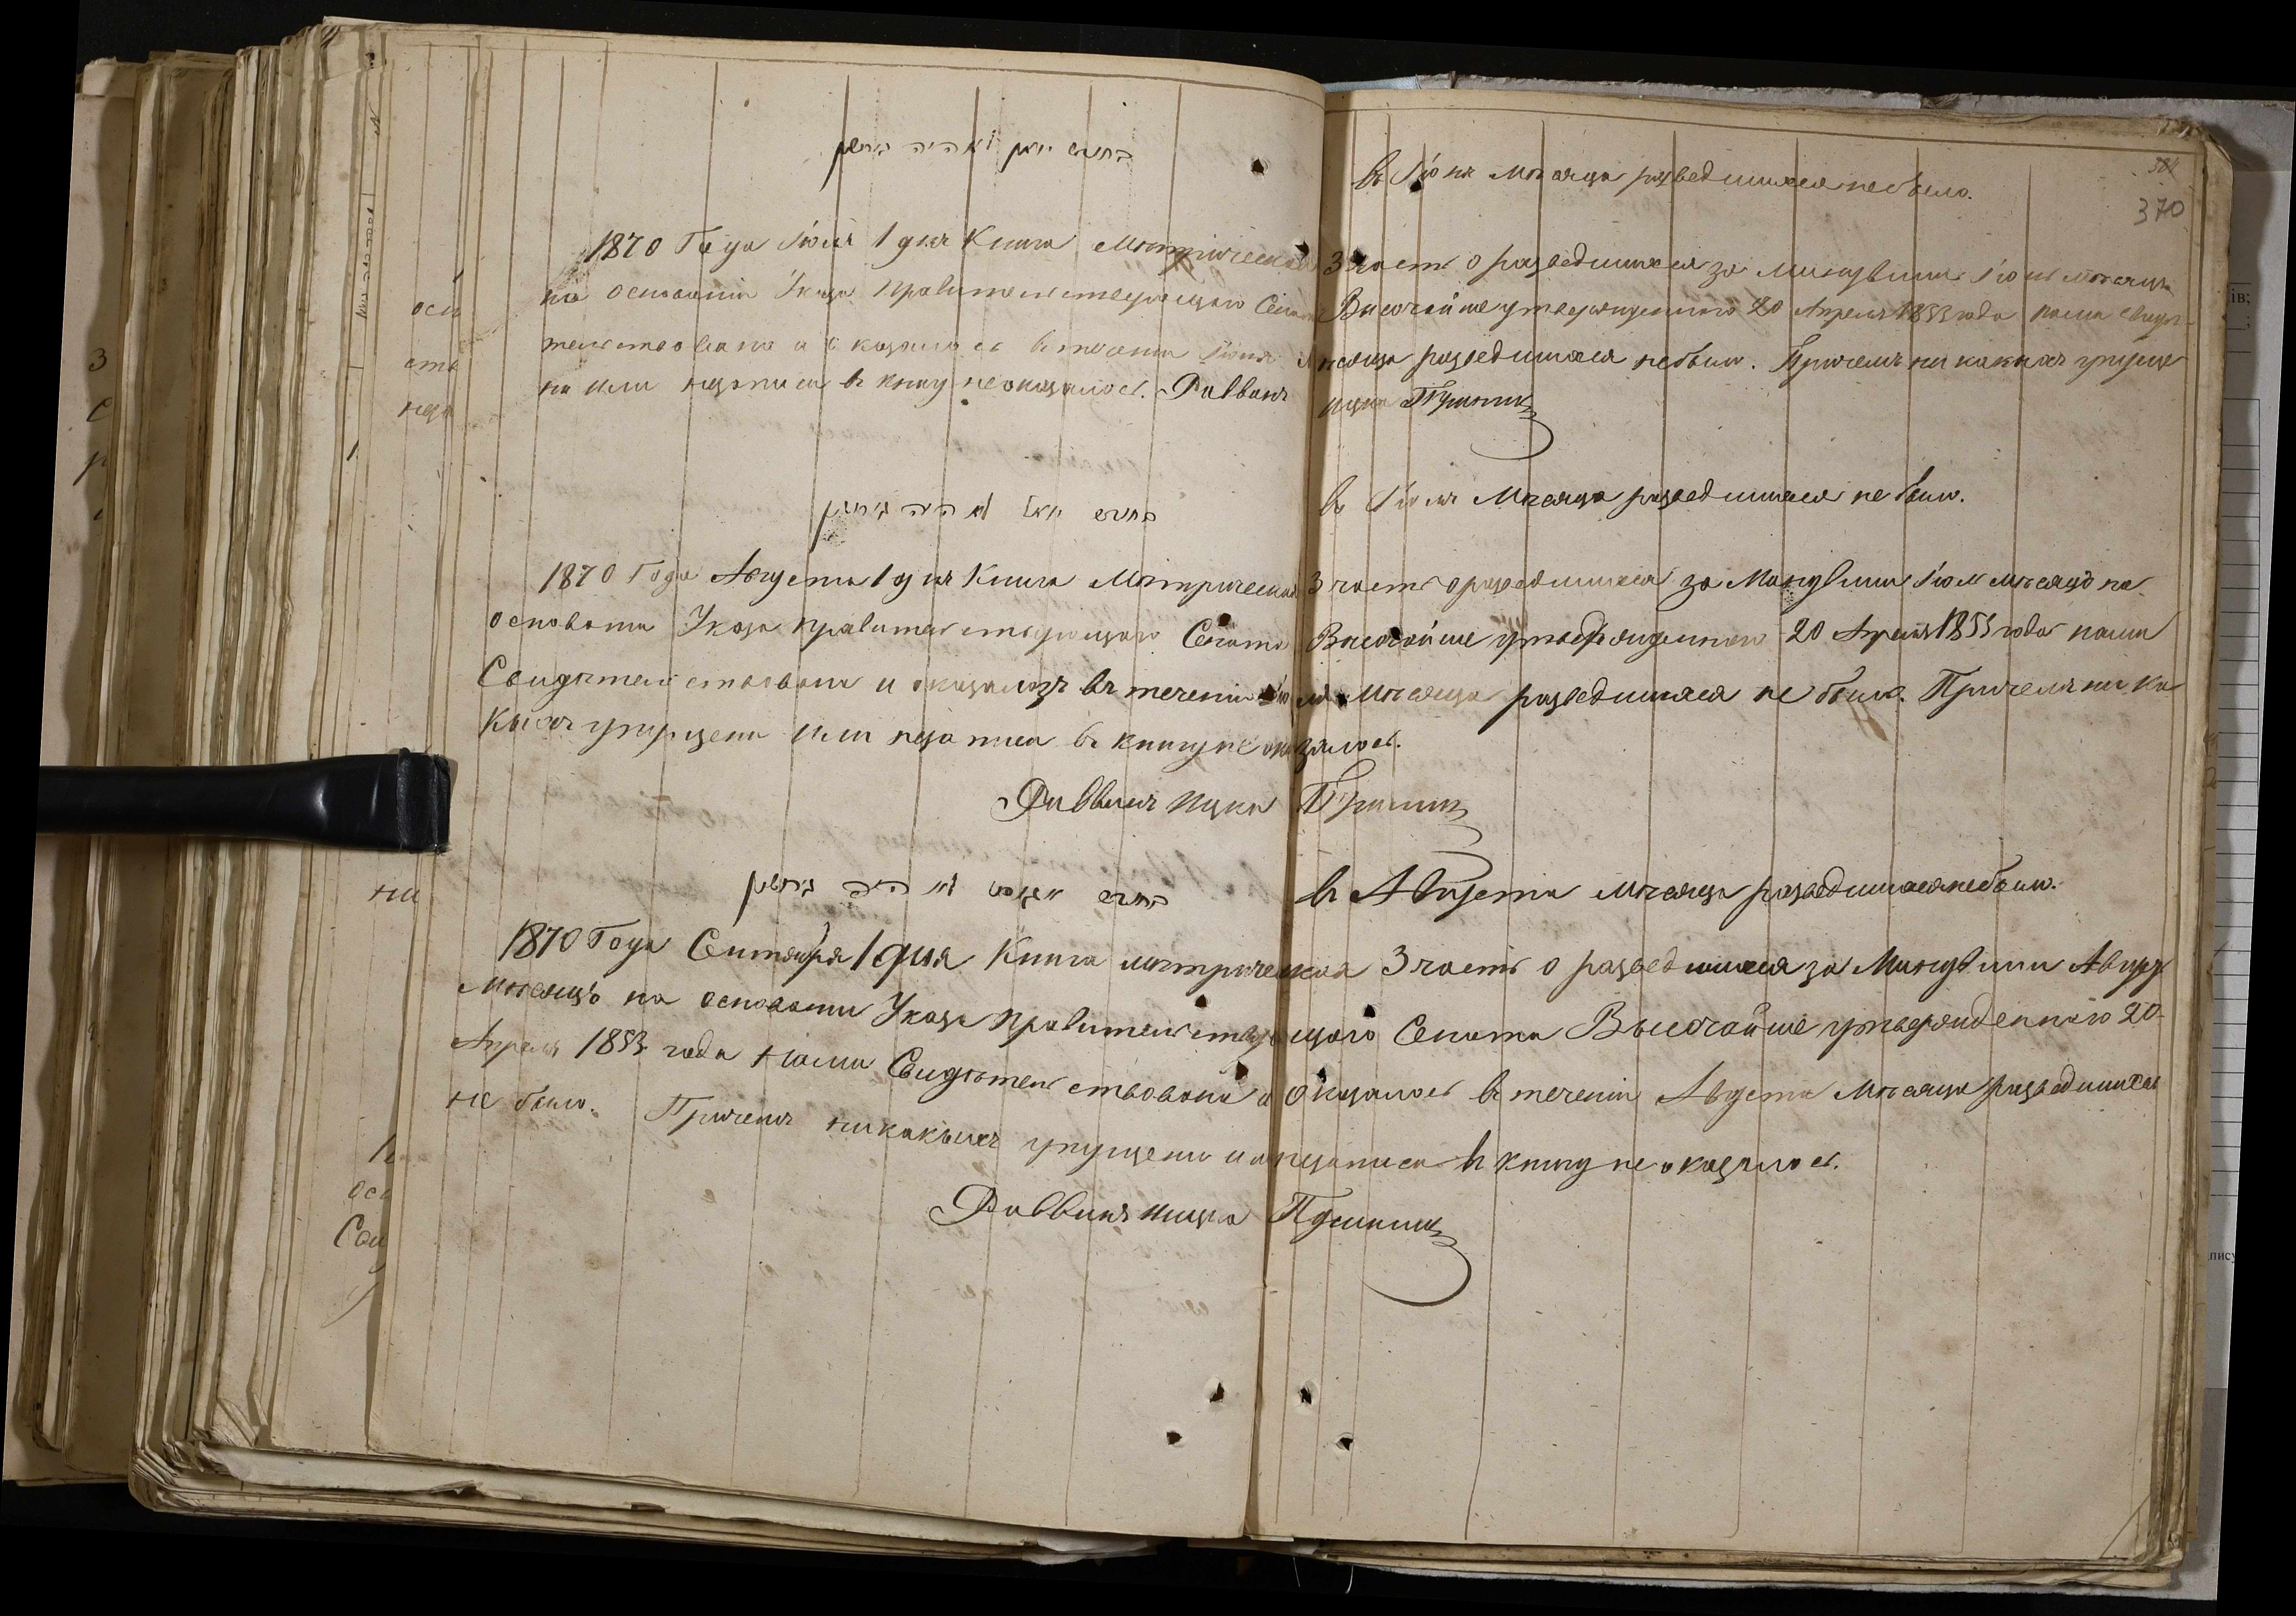 בחודש יוני לא היה גרושין
въ Іюня Мѣсяца разведшихся небыло.
370
1870 Года Іюля 1 дня Книга Метрическая 3 часть о разведшихся за минувшии Іюнь мѣсяцъ
на основании Указа Правительствующаго Сената Высочайше утвержденнаго 20 Апреля 1853 года нами свидѣ-
тельствована и оказалось въ течении Іюня Мѣсяца разведшихся небыло. Причемъ ни какихъ упуще
ни или недописи въ книгу неоказалось. Раввинъ Ицка
בחודש יולי לא היה גרושין
въ Іюля Мѣсяца разведшихся не было.
1870 Года Августа 1 дня Книга Метрическая 3 часть о разведшихся за Минувшии Іюль мѣсяцъ на
основании Указа Правительствующаго Сената Высочайше утвержденнаго 20 Апреля 1853 года нами
Свидѣтельствована и оказалозъ въ течении Іюля Мѣсяца разведшихся не было. Причемъ ни ка
кыхъ упущени или недописи въ книгу не оказалось.
Раввинъ Ицка
בחודש אוגוסט לא היה גרושין
въ Августа Мѣсяца разведшихся небыло.
1870 Года Сентября 1 дня Книга метрическая 3 часть о разведшихся за Минувшии Август
Мѣсяцъ на основании Указа Правительствующаго Сената Высочайше утвержденнаго 20
Апреля 1853 года нами Свидѣтельствована и оказалось въ течении Августа Мѣсяца разведшихся
не было. Причемъ никакыхъ упущени или недописи въ книгу не оказалось.
Раввинъ Ицка